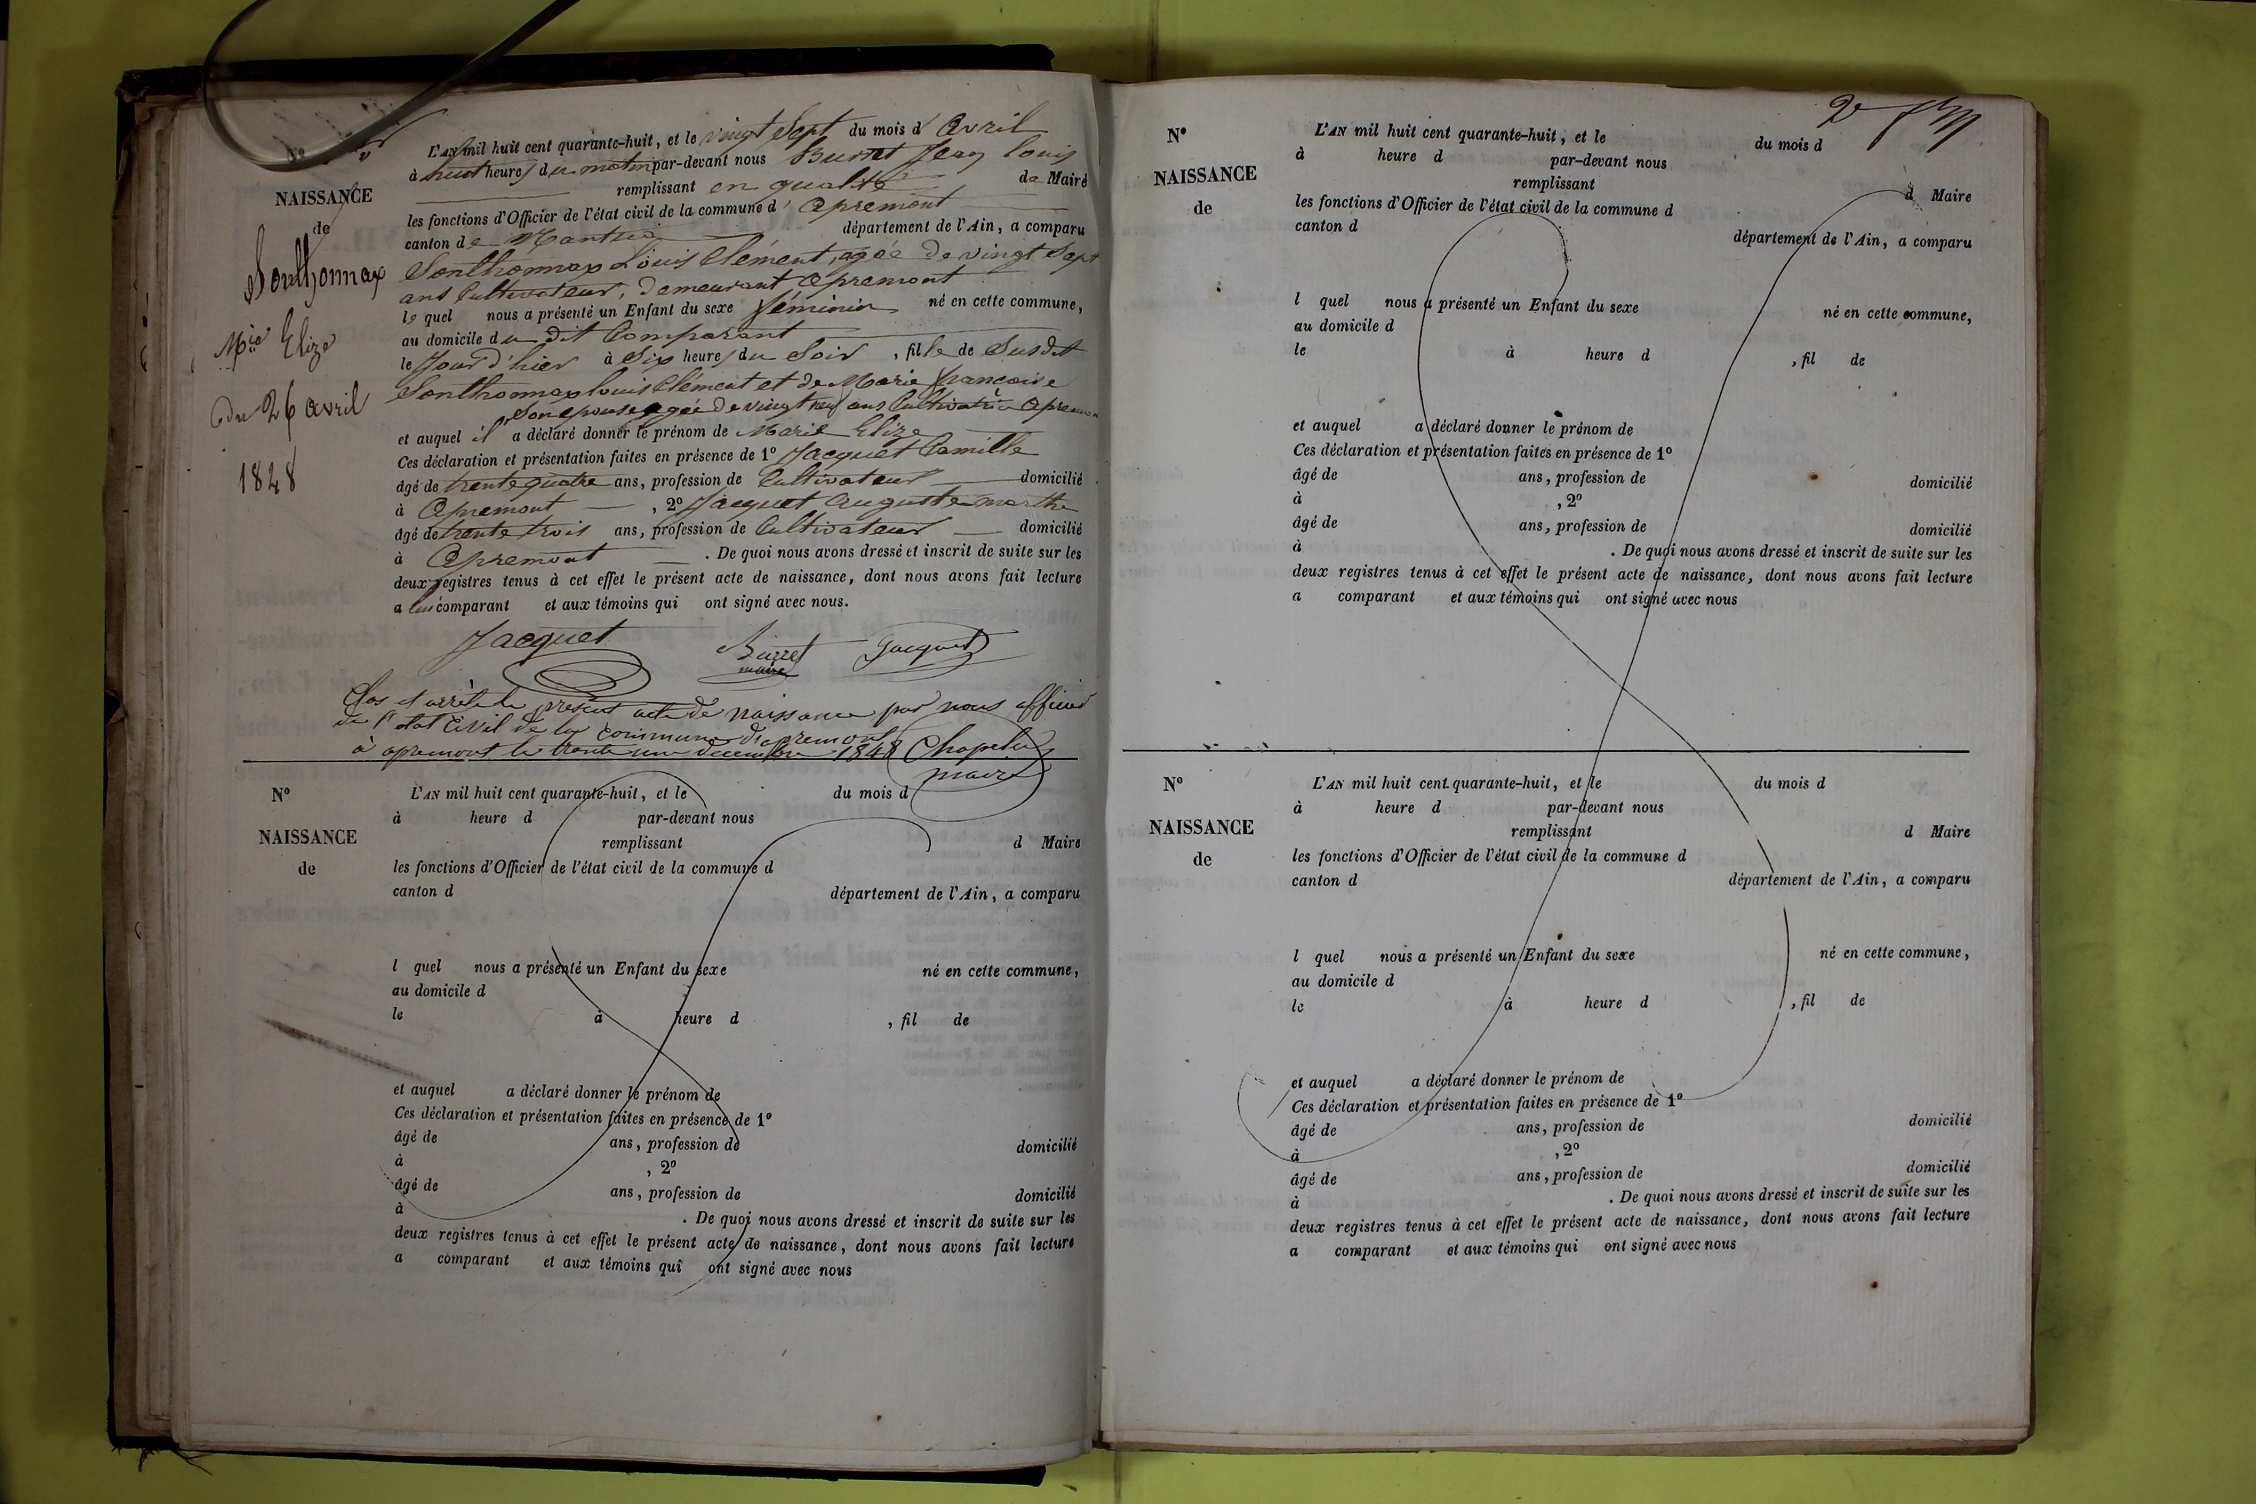 NAISSANCE
de
Sonthonnax
Mie Elize
du 26 avril
1848
L'AN mil huit cent quarante-huit, et le vingt Sept du mois d' avril
à huit heures du matin par-devant nous Burret Jean Louis
remplissant en qualité de Maire
les fonctions d'Officier de l'état civil de la commune d' apremont
canton de Nantua département de l'Ain, a comparu
Sonthonnax Louis Clément, agée de vingt Sept
ans Cultivateur, demeurant apremont
le quel nous a présenté un Enfant du sexe féminin né en cette commune,
au domicile du dit Comparant
le Jour d'hier à Six heures du Soir , fille de Susdit
Sonthonnax louis Clément et de Marie françoise
Son epouse agée de vingt ans Cultivatrice
et auquel il a déclaré donner le prénom de Marie Elize
Ces déclaration et présentation faites en présence de 1° Jacquet Camille
âgé de trente quatre ans, profession de Cultivateur domicilié
à Apremont , 2° Jacquet auguste marthe
âgé de trente trois ans, profession de Cultivateur domicilié
à Apremont . De quoi nous avons dressé et inscrit de suite sur les
deux registres tenus à cet effet le présent acte de naissance, dont nous avons fait lecture
a comparant et aux témoins qui ont signé avec nous.
Jacquet Burret Jacquet
maire
Clos et arrêté le présent acte de naissance par nous officier
de l'état civil de la commune d'apremont
à apremont le trente un decembre 1848 Chapelu
maire
N°
NAISSANCE
de
L'AN mil huit cent quarante-huit, et le du mois d
à heure d par-devant nous
remplissant d Maire
les fonctions d'Officier de l'état civil de la commune d
canton d département de l'Ain, a comparu
l quel nous a présenté un Enfant du sexe né en cette commune,
au domicile d
le à heure d , fil de
et auquel a déclaré donner le prénom de
Ces déclaration et présentation faites en présence de 1°
âgé de ans, profession de domicilié
à , 2°
âgé de ans, profession de domicilié
à . De quoi nous avons dressé et inscrit de suite sur les
deux registres tenus à cet effet le présent acte de naissance, dont nous avons fait lecture
a comparant et aux témoins qui ont signé avec nous
N°
NAISSANCE
de
L'AN mil huit cent quarante-huit, et le du mois d
à heure d par-devant nous
remplissant d Maire
les fonctions d'Officier de l'état civil de la commune d
canton d département de l'Ain, a comparu
l quel nous a présenté un Enfant du sexe né en cette commune,
au domicile d
le à heure d , fil de
et auquel a déclaré donner le prénom de
Ces déclaration et présentation faites en présence de 1°
âgé de ans, profession de domicilié
à , 2°
âgé de ans, profession de domicilié
à . De quoi nous avons dressé et inscrit de suite sur les
deux registres tenus à cet effet le présent acte de naissance, dont nous avons fait lecture
a comparant et aux témoins qui ont signé avec nous
N°
NAISSANCE
de
L'AN mil huit cent quarante-huit, et le du mois d
à heure d par-devant nous
remplissant d Maire
les fonctions d'Officier de l'état civil de la commune d
canton d département de l'Ain, a comparu
l quel nous a présenté un Enfant du sexe né en cette commune,
au domicile d
le à heure d , fil de
et auquel a déclaré donner le prénom de
Ces déclaration et présentation faites en présence de 1°
âgé de ans, profession de domicilié
à , 2°
âgé de ans, profession de domicilié
à . De quoi nous avons dressé et inscrit de suite sur les
deux registres tenus à cet effet le présent acte de naissance, dont nous avons fait lecture
a comparant et aux témoins qui ont signé avec nous